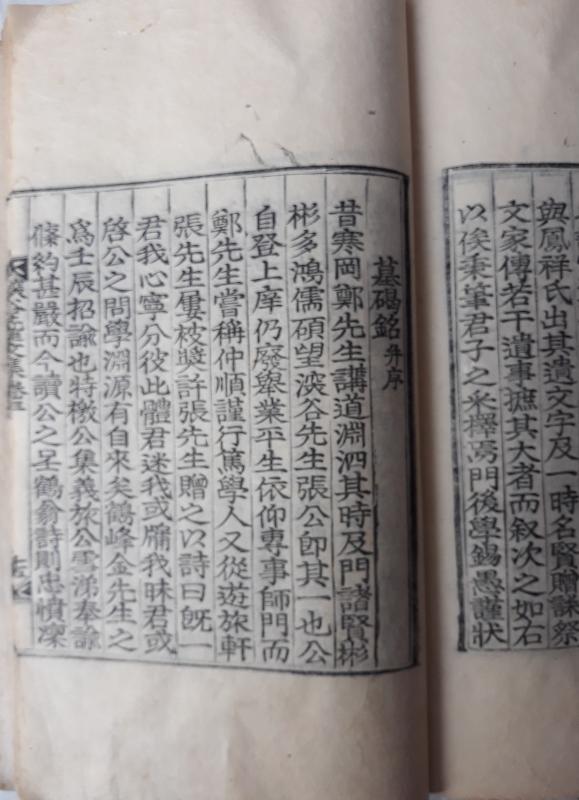 與鳳祥氏出其遺文字及一時名賢贈誄祭
文家傳若干遺事摭其大者而叙次之如右
以俟秉筆君子之采擇焉門後學錫愚謹狀
墓碣銘 幷序
昔寒岡鄭先生講道淵泗其時及門諸賢彬
彬多鴻儒碩望深谷先生張公卽其一也公
自登上庠仍廢擧業平生依仰專事師門而
鄭先生嘗稱仲順謹行篤學人又從遊旅軒
張先生屢被獎許張先生贈之以詩曰旣一
君我心寧分彼此體君迷我或牖我昧君或
啓公之問學淵源有自來矣鶴峰金先生之
爲壬辰招諭也特檄公集義旅公雪涕奉諭
條約甚嚴而今讀公之呈鶴翁詩則忠憤深